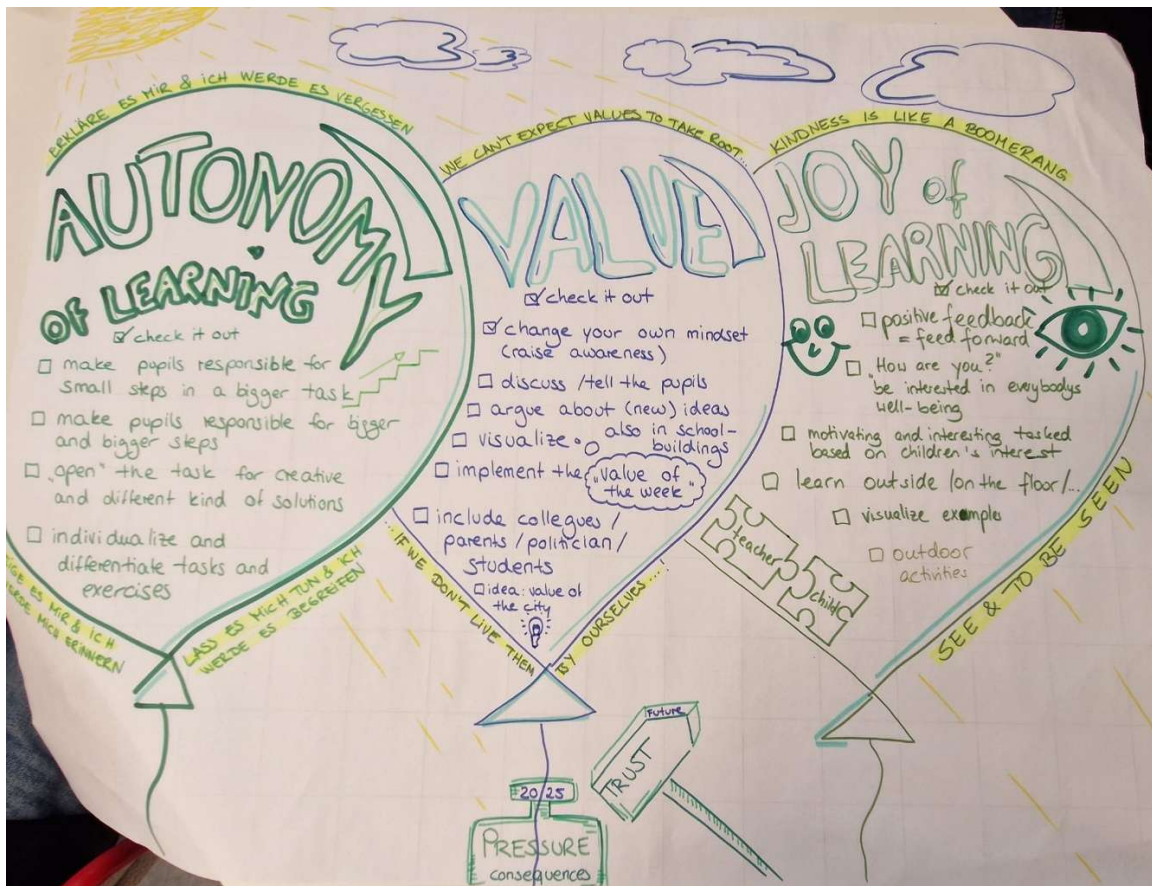 ERKLÄRE ES MIR & ICH WERDE ES VERGESSEN
AUTONOMY
OF LEARNING
check it out
make pupils responsible for
small steps in a bigger task
make pupils responsible for bigger
and bigger steps
„open" the task for creative
and different kind of solutions
individualize and
differentiate tasks and
exercises
ES MIR & ICH
MICH ERINNERN
LASS ES MICH TUN & ICH
WERDE ES BEGREIFEN
WE CAN'T EXPECT VALUES TO TAKE ROOT...
VALUE
check it out
change your own mindset
(raise awareness)
discuss / tell the pupils
argue about (new) ideas
visualize also in school-
buildings
implement the „value of
the week"
include collegues /
parents / politician /
students
idea: value of
the city
...IF WE DON'T LIVE THEM
BY OURSELVES....
KINDNESS IS LIKE A BOOMERANG
JOY of
LEARNING
check it out
positive feedback
= feed forward
„How are you?"
be interested in everybodys
well-being
motivating and interesting tasked
based on children's interest
learn outside / on the floor / ...
visualize examples
outdoor
activities
SEE & TO BE SEEN
teacher
child
Future
TRUST
2025
PRESSURE
consequences